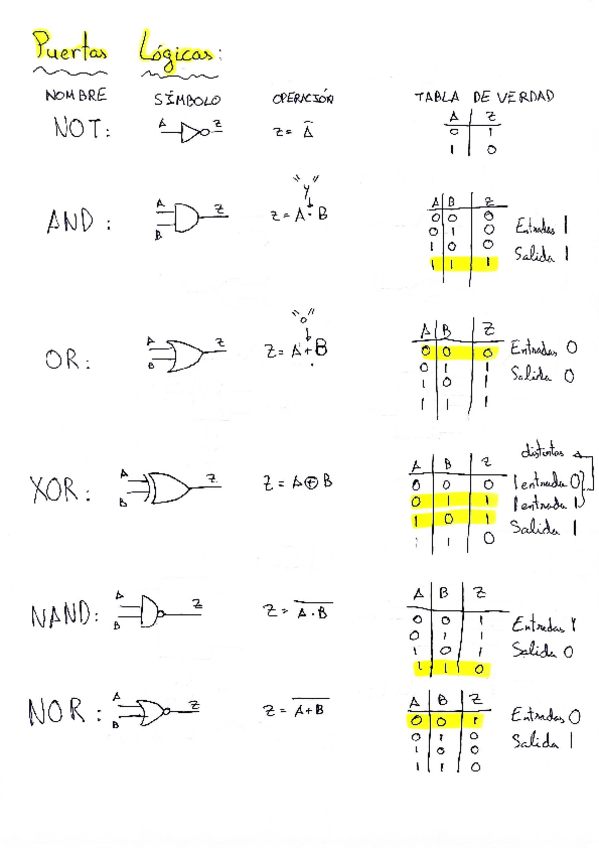 Puertas Lógicas:
NOMBRE SÍMBOLO OPERACIÓN TABLA DE VERDAD
NOT: A Z Z = A̅ A Z
0 1
1 0
"y"
AND: A B Z Z = A · B A B Z
0 0 0
0 1 0 Entradas 1
1 0 0 Salida 1
1 1 1
"o"
OR: A B Z Z = A + B A B Z
0 0 0 Entradas 0
0 1 1 Salida 0
1 0 1
1 1 1
distintas
XOR: A B Z Z = A ⊕ B A B Z
0 0 0 1 entrada 0
0 1 1 1 entrada 1
1 0 1 Salida 1
1 1 0
NAND: A B Z Z = A̅ ·̅ B̅ A B Z
0 0 1 Entradas 1
0 1 1 Salida 0
1 0 1
1 1 0
NOR: A B Z Z = A̅ +̅ B̅ A B Z
0 0 1 Entradas 0
0 1 0 Salida 1
1 0 0
1 1 0